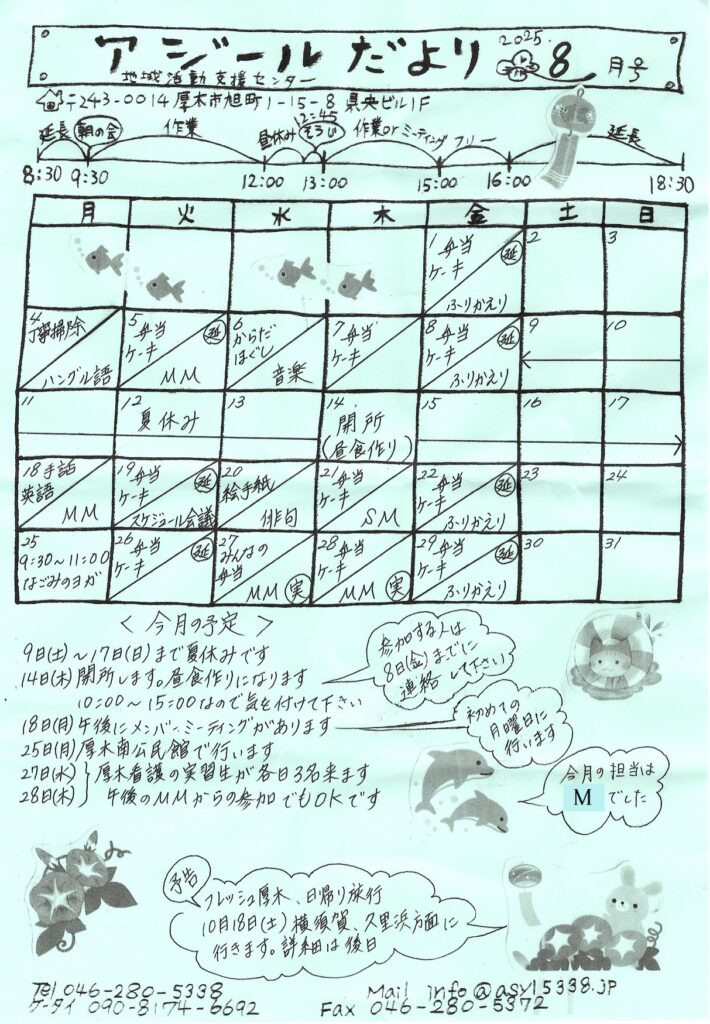 アジールだより 2025. 8月号
地域活動支援センター
〒243-0014 厚木市旭町1-15-8 県央ビル1F
延長 朝の会 作業 昼休み 12:45 そうじ 作業orミーティング フリー 延長
8:30 9:30 12:00 13:00 15:00 16:00 18:30
月 火 水 木 金 土 日
1 弁当 ケーキ 延 ふりかえり
2
3
4 丁寧掃除 ハングル語
5 弁当 ケーキ 延 MM
6 からだほぐし 音楽
7 弁当 ケーキ
8 弁当 ケーキ 延 ふりかえり
9
10
11
12 夏休み
13
14 開所 (昼食作り)
15
16
17
18 手話 英語 MM
19 弁当 ケーキ 延 スケジュール会議
20 絵手紙 俳句
21 弁当 ケーキ SM
22 弁当 ケーキ 延 ふりかえり
23
24
25 9:30~11:00 はごみのヨガ
26 弁当 ケーキ 延
27 みんなの弁当 MM 実
28 弁当 ケーキ MM 実
29 弁当 ケーキ 延 ふりかえり
30
31
〈今月の予定〉
9日(土)~17日(日)まで夏休みです
14日(木)開所します。昼食作りになります
10:00~15:00なので気を付けて下さい
18日(月)午後にメンバーミーティングがあります
25日(月)厚木南公民館で行います
27日(水)}厚木看護の実習生が各日3名来ます
28日(木)} 午後のMMからの参加でもOKです
参加する人は
8日(金)までに
連絡して下さい
初めての
月曜日に
行います
今月の担当は
M でした
予告
フレッシュ厚木、日帰り旅行
10月18日(土)横須賀、久里浜方面に
行きます。詳細は後日
Tel 046-280-5338
Mail info@asyl5338.jp
ケータイ 090-8174-6692
Fax 046-280-5372